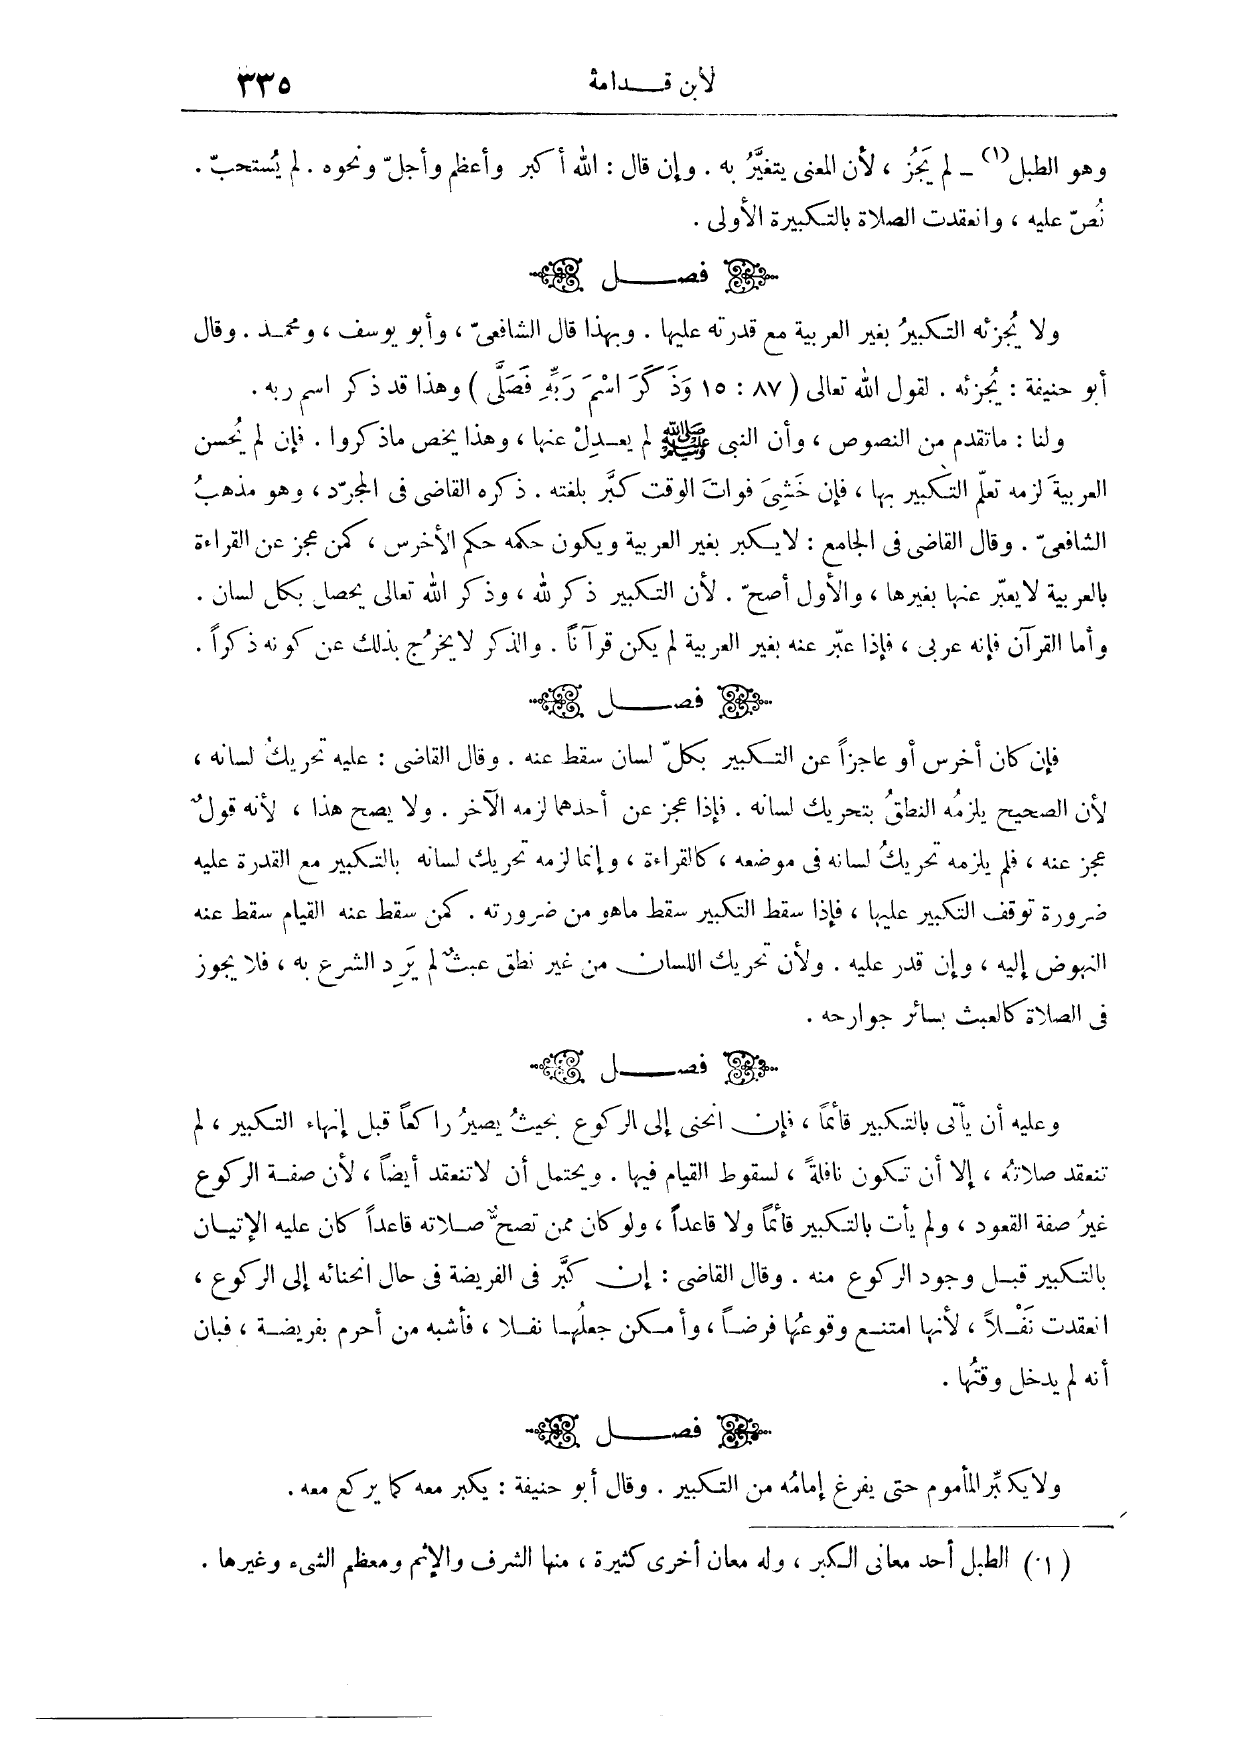 لابن قدامة ٣٣٥
وهو الطبل(١) ـ لم يَجُز ، لأن المعنى يتغيَّرُ به . وإن قال : الله أكبر وأعظم وأجلّ ونحوه . لم يُستحبّ .
نُصّ عليه ، وانعقدت الصلاة بالتكبيرة الأولى .
فصل
ولا يُجزئه التكبيرُ بغير العربية مع قدرته عليها . وبهذا قال الشافعىّ ، وأبو يوسف ، ومحمد . وقال
أبو حنيفة : يُجزئه . لقول الله تعالى ( ٨٧ : ١٥ وَذَكَرَ اسْمَ رَبِّهِ فَصَلَّى ) وهذا قد ذكر اسم ربه .
ولنا : ماتقدم من النصوص ، وأن النبى ﷺ لم يعدِلْ عنها ، وهذا يخص ماذكروا . فإن لم يُحسن
العربيةَ لزمه تعلّم التكبير بها ، فإن خَشِىَ فواتَ الوقت كبَّر بلغته . ذكره القاضى فى المجرّد ، وهو مذهبُ
الشافعىّ . وقال القاضى فى الجامع : لايكبر بغير العربية ويكون حكمه حكم الأخرس ، كمن عجز عن القراءة
بالعربية لايعبّر عنها بغيرها ، والأول أصحّ . لأن التكبير ذكر لله ، وذكر الله تعالى يحصل بكل لسان .
وأما القرآن فإنه عربى ، فإذا عبّر عنه بغير العربية لم يكن قرآناً . والذكر لايخرُج بذلك عن كونه ذكراً .
فصل
فإن كان أخرس أو عاجزاً عن التكبير بكلّ لسان سقط عنه . وقال القاضى : عليه تحريكُ لسانه ،
لأن الصحيح يلزمُه النطقُ بتحريك لسانه . فإذا عجز عن أحدهما لزمه الآخر . ولا يصح هذا ، لأنه قولٌ
عجز عنه ، فلم يلزمه تحريكُ لسانه فى موضعه ، كالقراءة ، وإنما لزمه تحريك لسانه بالتكبير مع القدرة عليه
ضرورة توقف التكبير عليها ، فإذا سقط التكبير سقط ماهو من ضرورته . كمن سقط عنه القيام سقط عنه
النهوض إليه ، وإن قدر عليه . ولأن تحريك اللسان من غير نطق عبثٌ لم يَرِد الشرع به ، فلا يجوز
فى الصلاة كالعبث بسائر جوارحه .
فصل
وعليه أن يأتى بالتكبير قائماً ، فإن انحنى إلى الركوع بحيثُ يصيرُ راكعاً قبل إنهاء التكبير ، لم
تنعقد صلاتُه ، إلا أن تكون نافلةً ، لسقوط القيام فيها . ويحتمل أن لاتنعقد أيضاً ، لأن صفة الركوع
غيرُ صفة القعود ، ولم يأت بالتكبير قائماً ولا قاعداً ، ولو كان ممن تصحّ صلاته قاعداً كان عليه الإتيان
بالتكبير قبل وجود الركوع منه . وقال القاضى : إن كبَّر فى الفريضة فى حال انحنائه إلى الركوع ،
انعقدت نَفْلاً ، لأنها امتنع وقوعُها فرضاً ، وأمكن جعلُها نفلا ، فأشبه من أحرم بفريضة ، فبان
أنه لم يدخل وقتُها .
فصل
ولايكبِّر المأموم حتى يفرغ إمامُه من التكبير . وقال أبو حنيفة : يكبر معه كما يركع معه .
( ١ ) الطبل أحد معانى الكبر ، وله معان أخرى كثيرة ، منها الشرف والإثم ومعظم الشىء وغيرها .